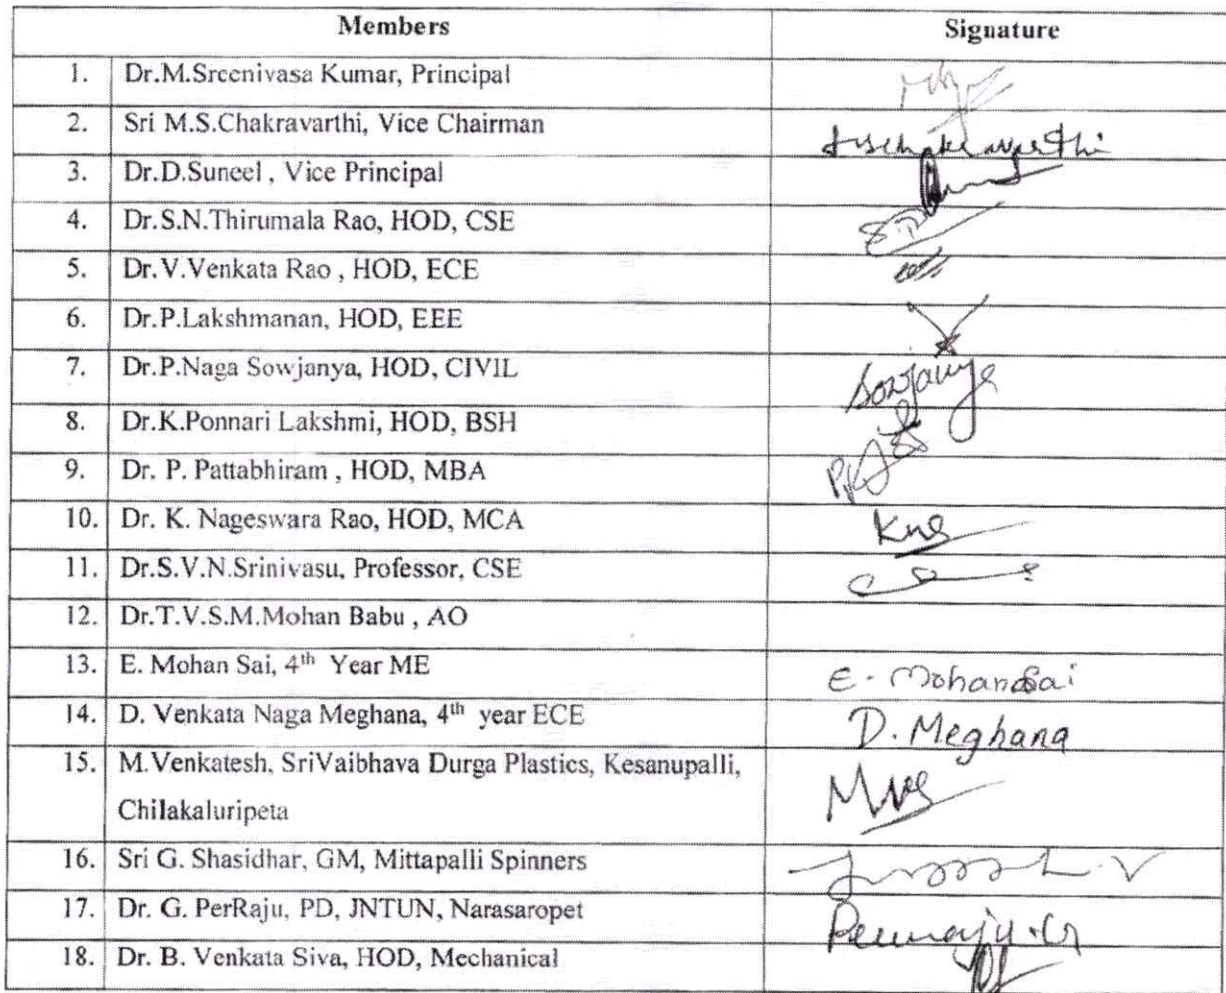 Members Signature
1. Dr.M.Sreenivasa Kumar, Principal
2. Sri M.S.Chakravarthi, Vice Chairman
3. Dr.D.Suneel , Vice Principal
4. Dr.S.N.Thirumala Rao, HOD, CSE
5. Dr.V.Venkata Rao , HOD, ECE
6. Dr.P.Lakshmanan, HOD, EEE
7. Dr.P.Naga Sowjanya, HOD, CIVIL Sowjanya
8. Dr.K.Ponnari Lakshmi, HOD, BSH
9. Dr. P. Pattabhiram , HOD, MBA
10. Dr. K. Nageswara Rao, HOD, MCA
11. Dr.S.V.N.Srinivasu, Professor, CSE
12. Dr.T.V.S.M.Mohan Babu , AO
13. E. Mohan Sai, 4th Year ME E. Mohan Sai
14. D. Venkata Naga Meghana, 4th year ECE D. Meghana
15. M.Venkatesh, SriVaibhava Durga Plastics, Kesanupalli,
Chilakaluripeta
16. Sri G. Shasidhar, GM, Mittapalli Spinners
17. Dr. G. PerRaju, PD, JNTUN, Narasaropet
18. Dr. B. Venkata Siva, HOD, Mechanical